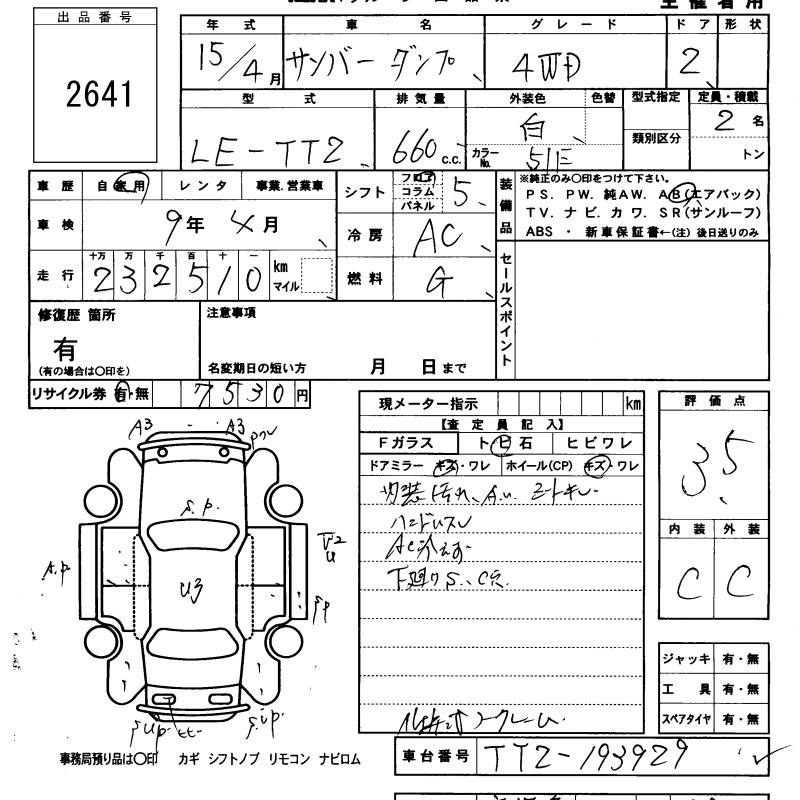 主催者用
出品番号
2641
年式 車名 グレード ドア 形状
15/4月 サンバー ダンプ 4WD 2
型式 排気量 外装色 色替 型式指定 定員・積載
類別区分
LE-TT2 660 c.c. 白 カラーNo. 51E 2名
トン
車歴 自家用 レンタ 事業.営業車
車検 9年 4月
走行 十万 万 千 百 十 一
232510 km マイル
シフト フロア コラム パネル 5
冷房 AC
燃料 G
装備品
※純正のみ○印をつけて下さい。
PS. PW. 純AW. AB(エアバック)
TV. ナビ. カワ. SR(サンルーフ)
ABS ・ 新車保証書←(注) 後日送りのみ
セールスポイント
修復歴 箇所
有
(有の場合は○印を)
注意事項
名変期日の短い方 月 日まで
リサイクル券 有・無 7530円
現メーター指示 km
【査定員記入】
Fガラス ト ビ 石 ヒビワレ
ドアミラー キズ・ワレ ホイール(CP) キズ・ワレ
内装汚れ、A.U. シートキレ
ハンドルスレ
AC冷えず
下廻りS、C穴
評価点
3.5
内装 外装
C C
A3 A3
S.P.
A.P
U3
U2
SP
S.U.P. S.U.P.
ジャッキ 有・無
工具 有・無
スペアタイヤ 有・無
ノークレーム
車台番号 TT2-193929
事務局預り品は○印 カギ シフトノブ リモコン ナビロム